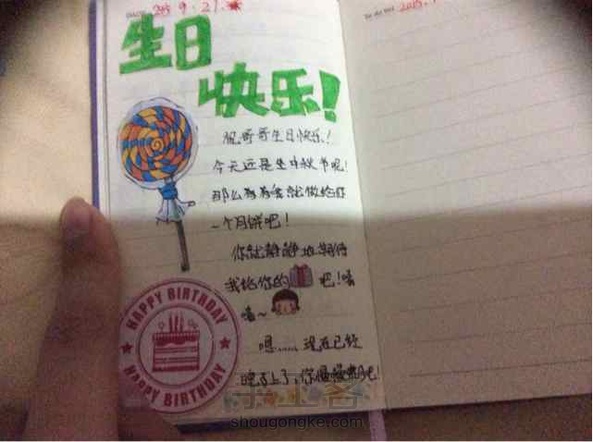 2015 9.27.
To do list 2015.
生日
快乐!
祝哥哥生日快乐!
今天还是中秋节呢!
那么就做给你
一个月饼吧!
你就静静地期待
我给你的吧!嘻
嘻~
嗯……现在已经
晚上了,你慢慢吧!
HAPPY BIRTHDAY
HAPPY BIRTHDAY
手工客
shougongke.com